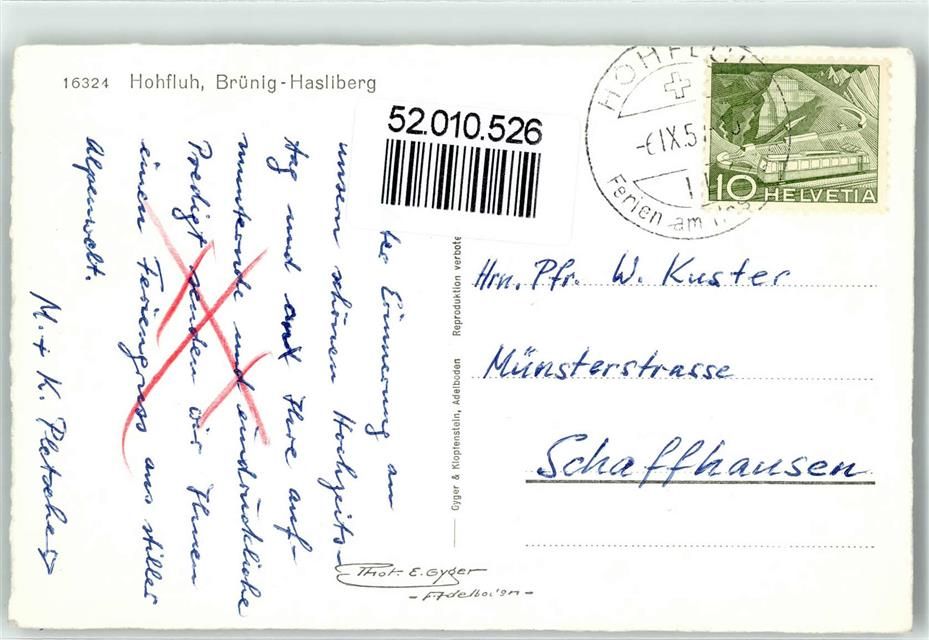 16324 Hohfluh, Brünig-Hasliberg
52.010.526
HOHFLUH
-6.IX.5
Ferien am
10 HELVETIA
ter Erinnerung an
unsern schönen Hochzeits-
tag und an Ihre auf-
munternde und eindrückliche
Predigt senden wir Ihnen
einen Feriengruss aus stiller
Alpenwelt.
M. + K. Pletscher
Gyger & Klopfenstein, Adelboden Reproduktion verboten
Hrn. Pfr. W. Kuster
Münsterstrasse
Schaffhausen
Phot. E. Gyger
-Adelboden-